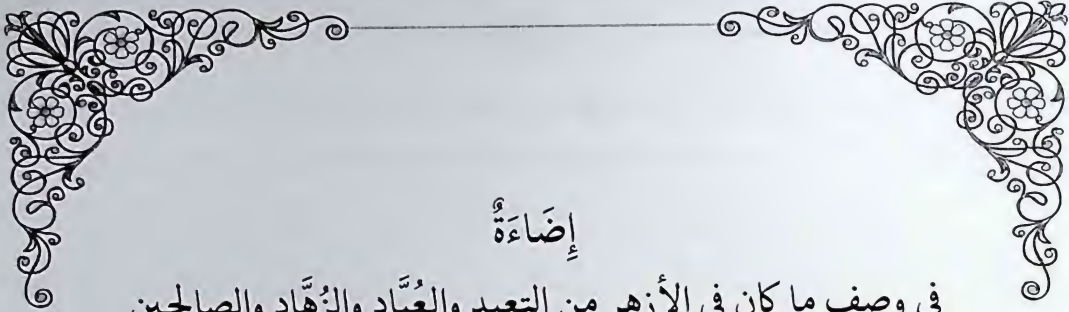 إِضَاءَةٌ
في وصف ما كان في الأزهر من التعبد والعُبَّاد والزُهَّاد والصالحين